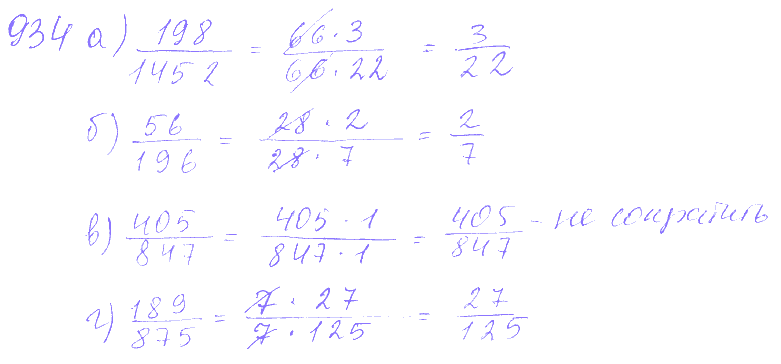 934 а) 198/1452 = 66·3/66·22 = 3/22
б) 56/196 = 28·2/28·7 = 2/7
в) 405/847 = 405·1/847·1 = 405/847 - не сократить
г) 189/875 = 7·27/7·125 = 27/125